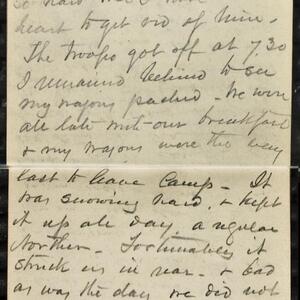 so hard that I have
heart to get rid of him.
The troops got off at 7.30
I remained behind to see
my wagons packed. We were
all late with our breakfast
& my wagons were the very
last to leave Camp. It
was snowing hard, & kept
it up all day, a regular
Norther. Fortunately it
struck us in rear. & bad
as was the day we did not